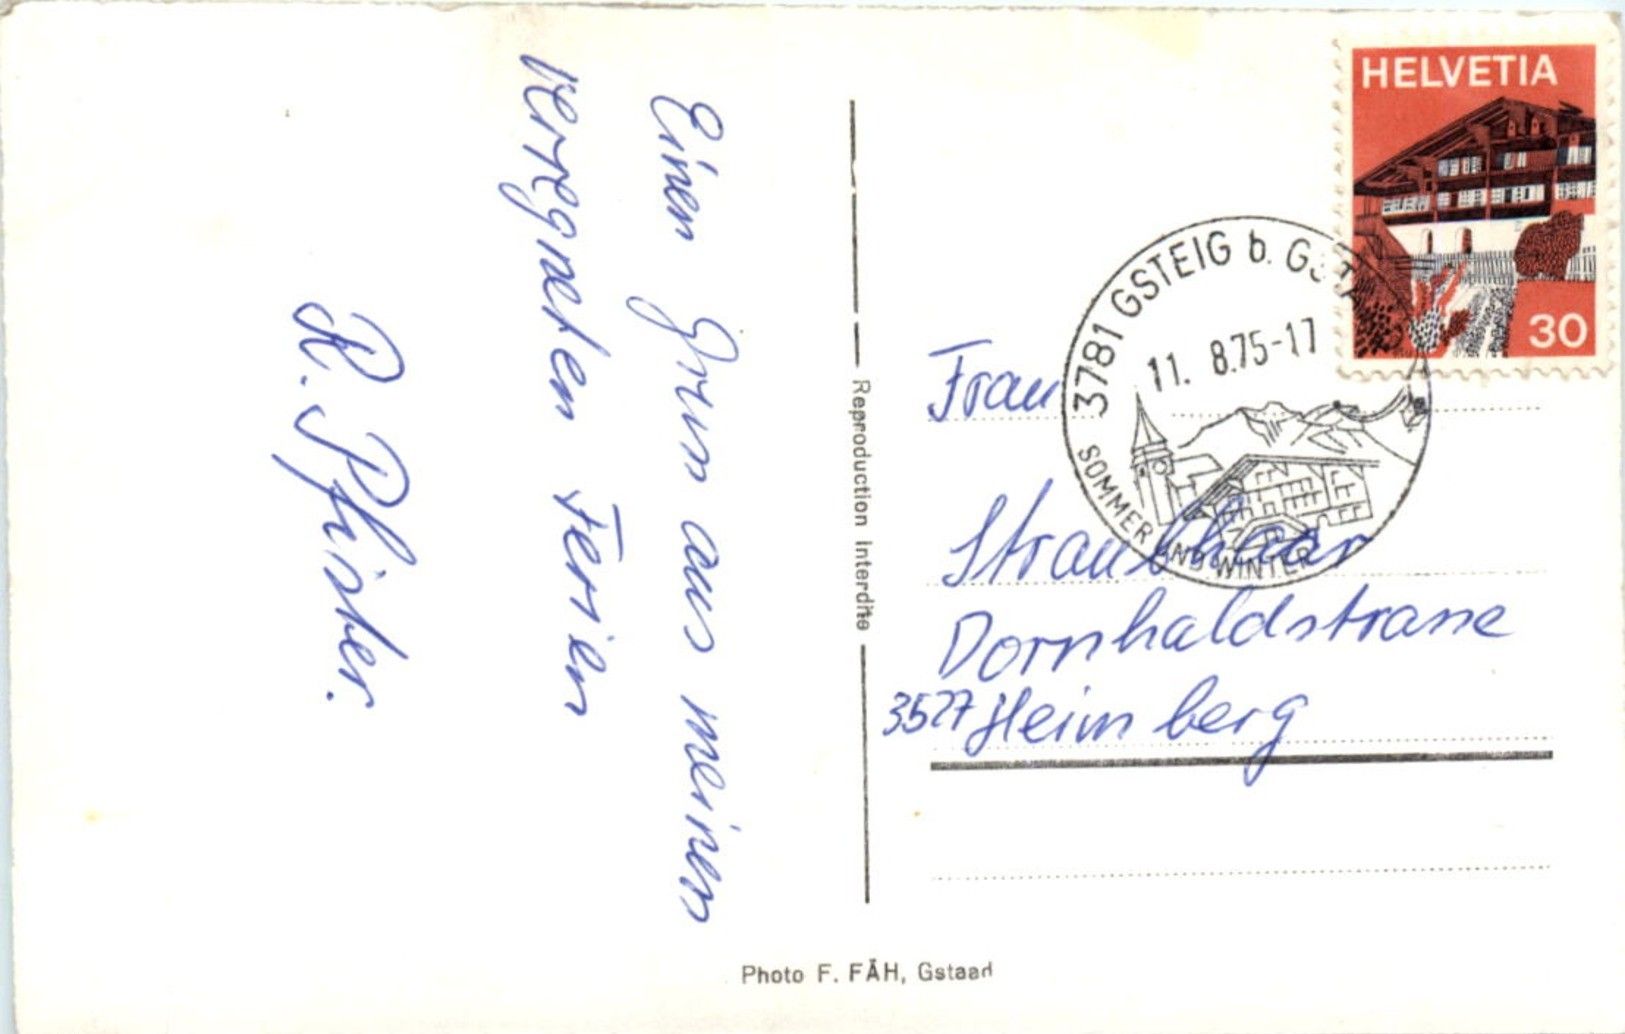 Einen Gruss aus meinen
verregneten Ferien
R. Pfister.
Reproduction Interdite
Photo F. FÄH, Gstaad
HELVETIA
30
3781 GSTEIG b. GSTA
11. 8.75-17
SOMMER UND WINTER
Frau
Straubhaar
Dornhaldstrasse
3527 Heimberg